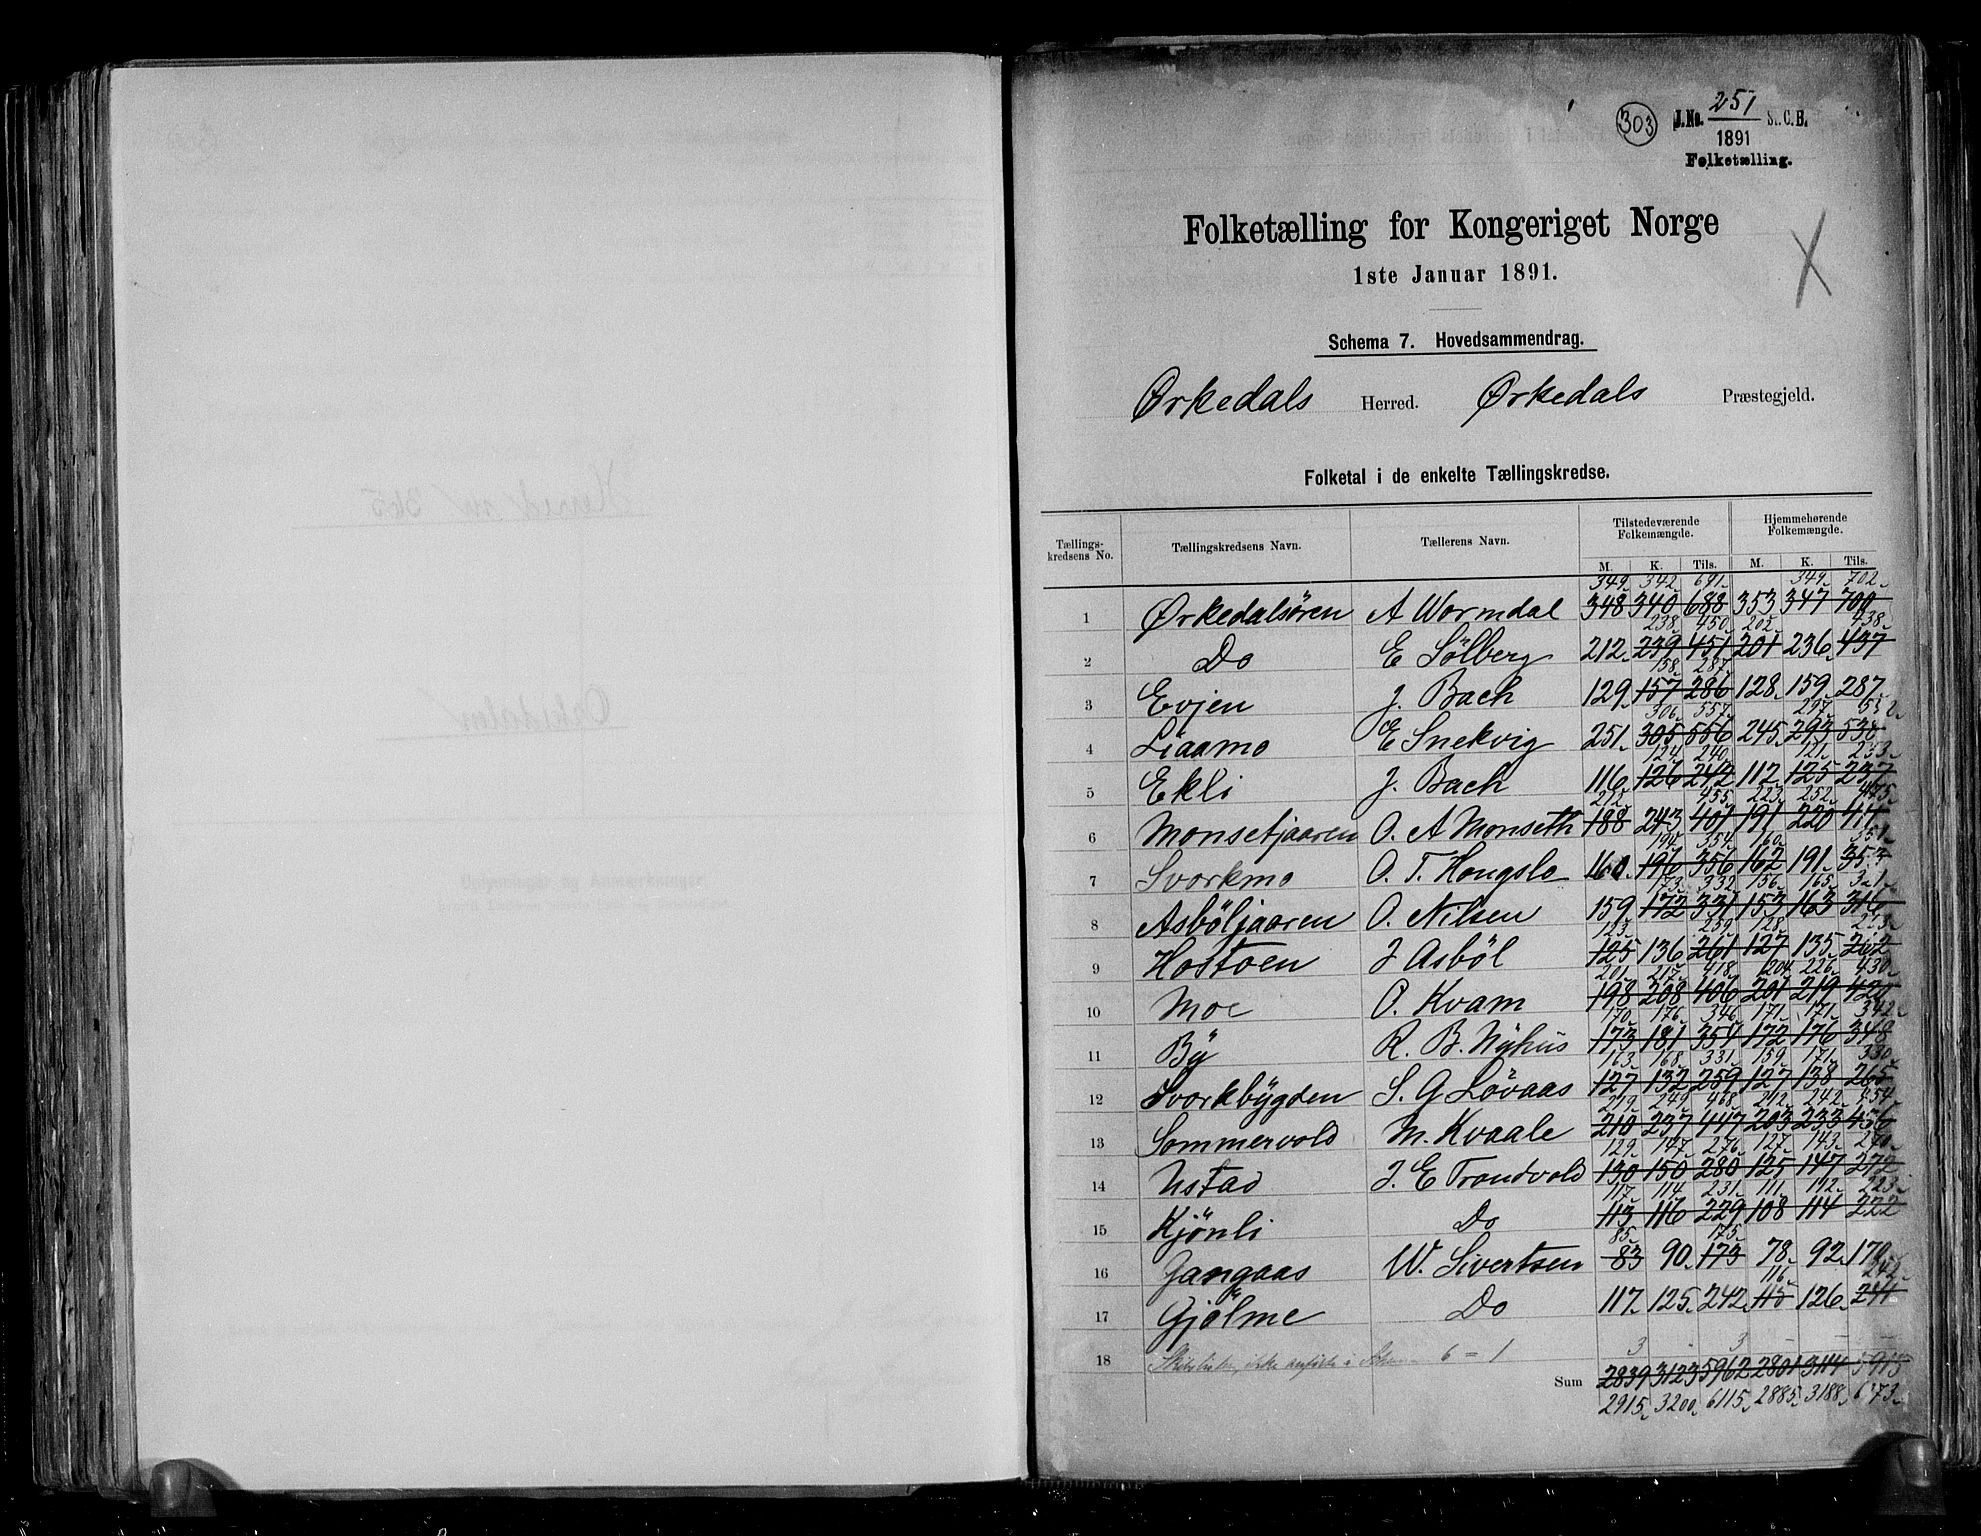 303 J.No. 251 St. C. B.
1891
Folketælling.
Folketælling for Kongeriget Norge
1ste Januar 1891.
Schema 7. Hovedsammendrag.
Ørkedals Herred. Ørkedals Præstegjeld.
Folketal i de enkelte Tællingskredse.
Tællings-kredsens No. Tællingskredsens Navn. Tællerens Navn. Tilstedeværende Folkemængde. Hjemmehørende Folkemængde.
M. K. Tils. M. K. Tils.
349 342 691 349 702
1 Ørkedalsören A Wormdal 348 340 688 353 347 700
238 450 202 438
2 Do E Sölberg 212 239 451 201 236 437
158 287
3 Evjen J. Bach 129 157 286 128 159 287
306 557 297
4 Liaamo E Snekvig 251 305 556 245 293 538
124 240 121 233
5 Ekli J. Bach 116 126 242 112 125 237
212 455 223 252 475
6 Monsetjaaren O. A Monseth 188 243 401 191 220 411
194 354 160 351
7 Svorkmo O. T. Hongslo 160 196 356 162 191 353
173 332 156 165 321
8 Asböljaaren O. Nilsen 159 172 331 153 163 316
123 259 128
9 Hostoen J Asböl 125 136 261 127 135 262
201 217 418 204 226 430
10 Moe O. Kvam 198 208 406 201 219 420
170 176 346 171 171 342
11 By R. B. Nyhus 173 181 354 172 176 348
163 168 331 159 171 330
12 Svorkbygden S. G Lövaas 127 132 259 127 138 265
219 249 468 212 242 454
13 Sommervold M. Kvaale 210 237 447 203 233 436
129 147 276 127 143 270
14 Ustad J. E Trondvold 130 150 280 125 147 272
117 114 231 111 112 223
15 Kjönli Do 113 116 229 108 114 222
85 175
16 Gangaas W. Sivertsen 83 90 173 78 92 170
116 242
17 Gjölme Do 117 125 242 115 126 241
18 6 = 1 3 - 3 - - -
Sum 2839 3123 5962 2801 3114 5915
2915 3200 6115 2885 3188 6073